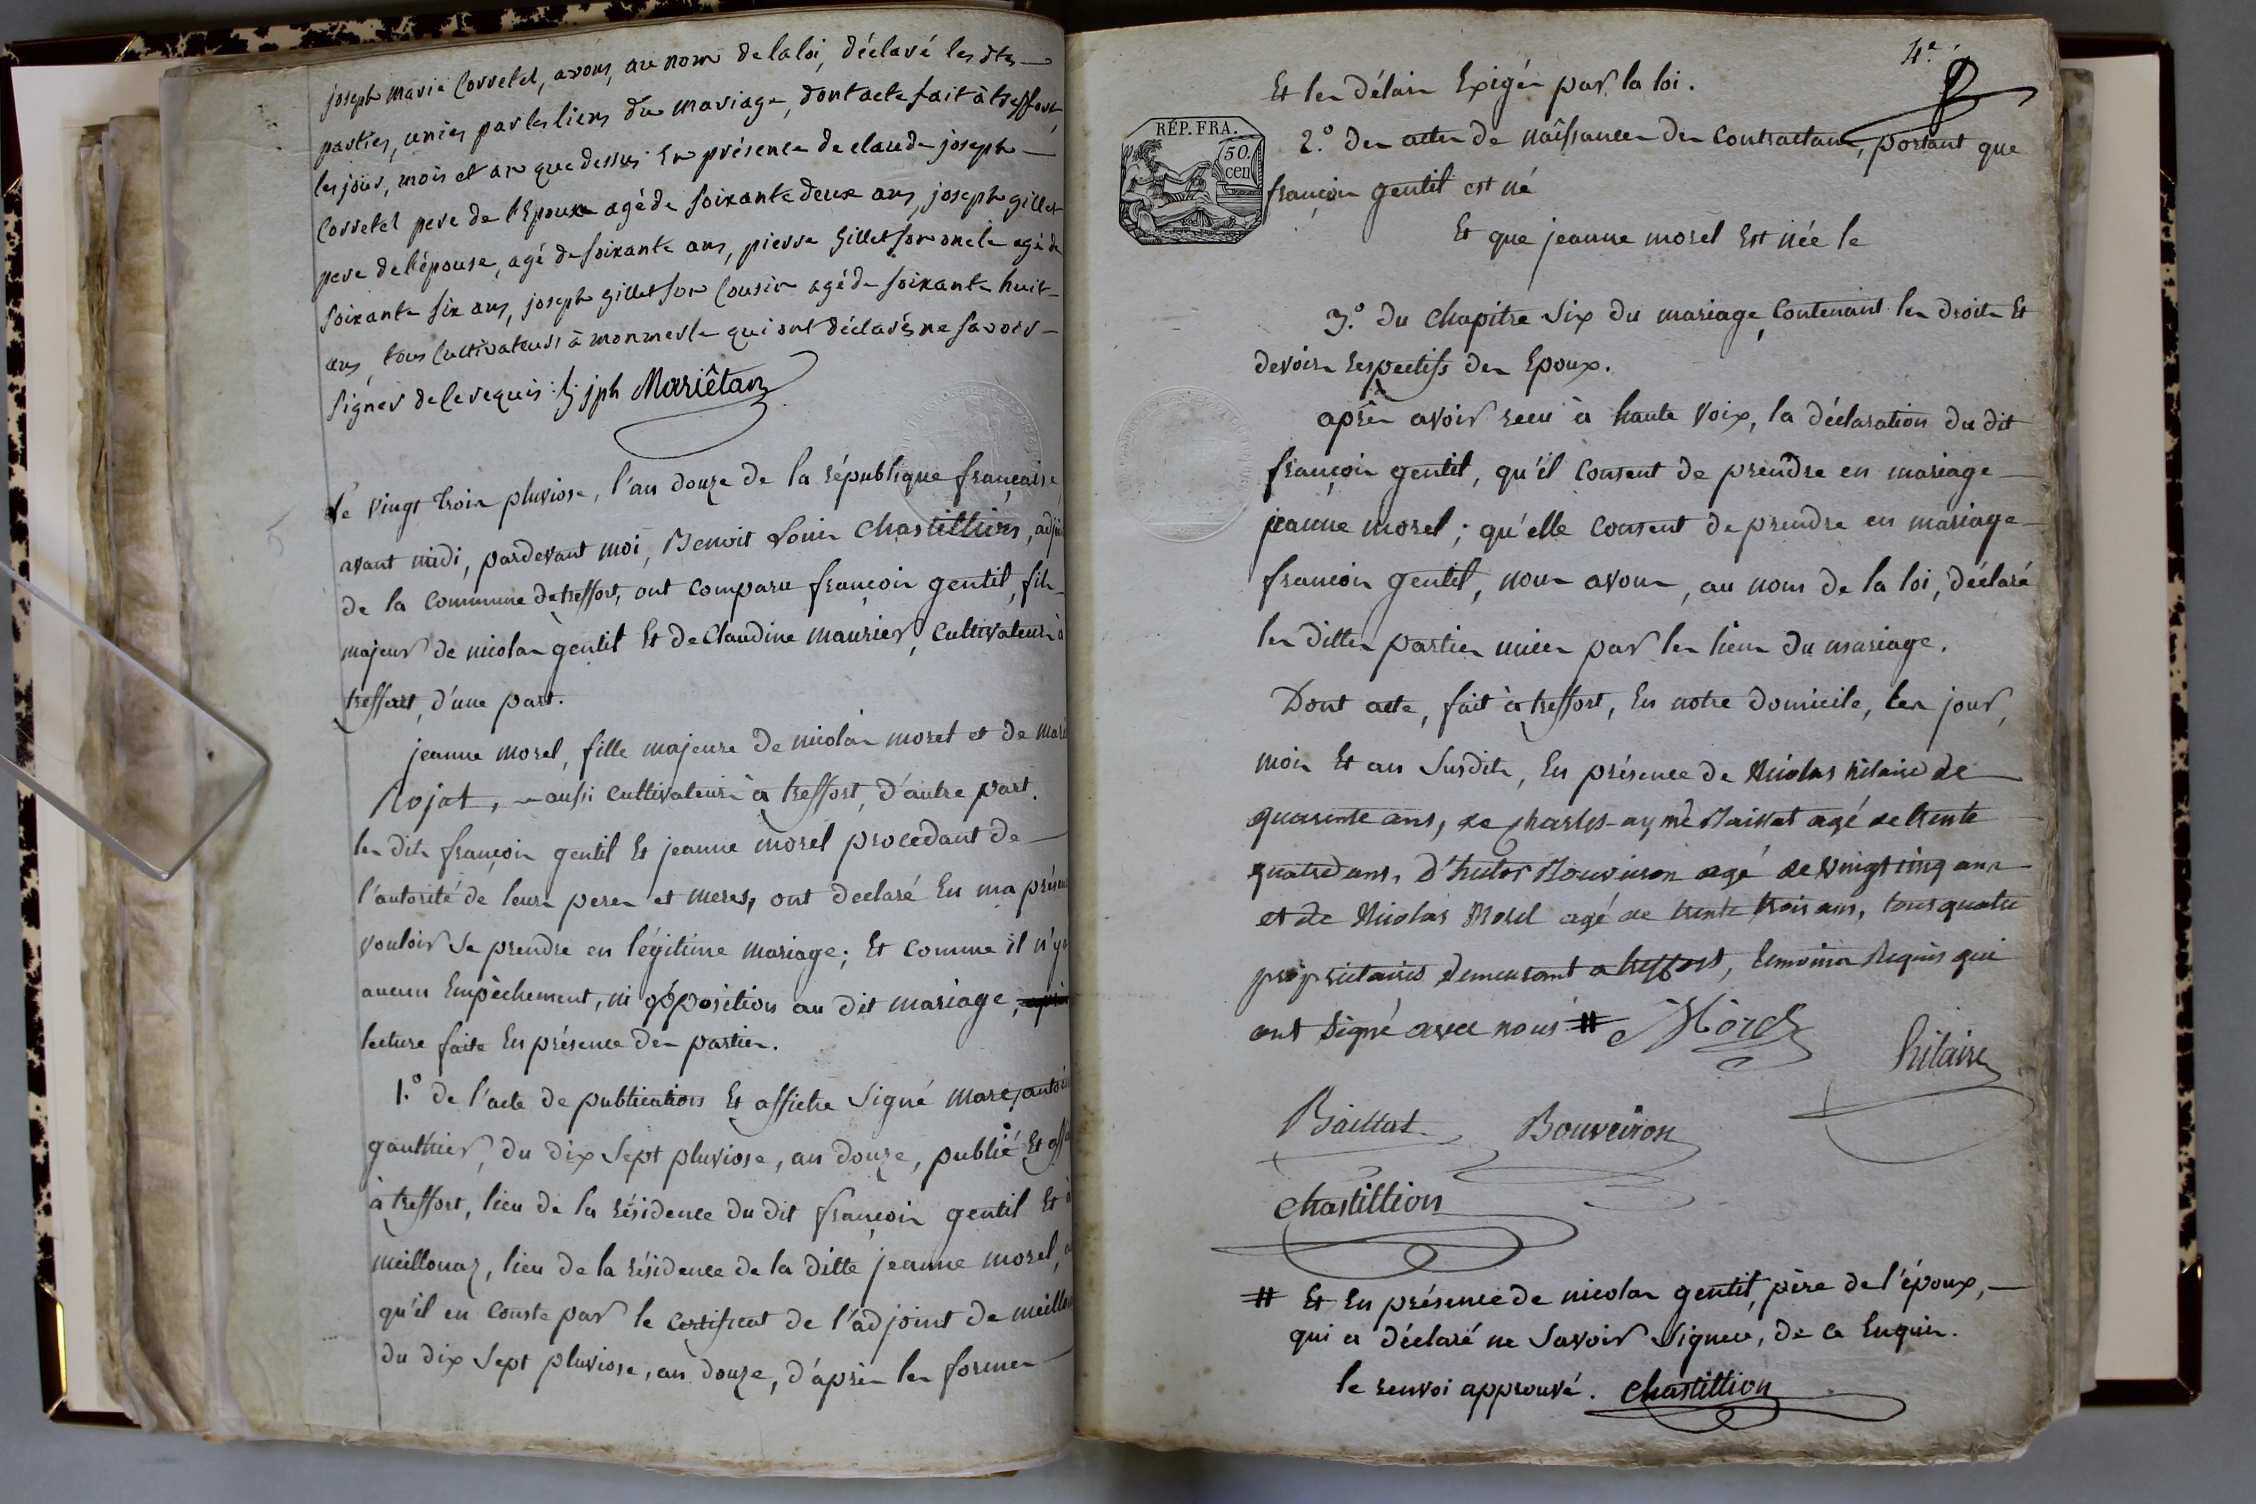 joseph marie Corretel, avons, au nom de la loi, déclaré les dtes
parties, unies par les liens du mariage, dont acte fait à treffort
les jour, mois et an que dessus En présence de claude joseph
Corretel pere de l'Epoux agé de soixante deux ans, joseph gillet
pere de l'épouse, agé de soixante ans, pierre Gillet son oncle agé de
soixante six ans, joseph gillet son Cousin agé de soixante huit
ans, tous Cultivateurs à monmerle qui ont déclarés ne savoir
signer de ce requis jph Mariêtan
le vingt trois pluviose, l'an douze de la république française
avant midi, pardevant moi, Benoit Louis Chastillion, adj
de la Commune de treffort, ont Comparu françois gentil, fils
majeur de nicolas gentil Et de Claudine maurier, Cultivateurs à
treffort, d'une part.
jeanne morel, fille majeure de nicolas morel et de mari
Rojat, aussi Cultivateurs à treffort, d'autre part.
les dits françois gentil Et jeanne morel procédant de
l'autorité de leurs peres et meres, ont declaré En ma présen
vouloir se prendre en légitime mariage; Et comme il n'y
aucun Empêchement, ni opposition au dit mariage,
lecture faite En présence des parties.
1.° de l'acte de publication Et affiche signé marc, antoi
gauthier, du dix sept pluviose, an douze, publié Et aff
à treffort, lieu de la résidence du dit françois gentil Et à
meillonaz, lieu de la résidence de la ditte jeanne morel,
qu'il en Conste par le Certificat de l'adjoint de meillo
du dix sept pluviose, an douze, d'après les formes
4.e
Et les délais Exigés par la loi.
RÉP. FRA.
50.
cen
2.° des actes de naissances des Contractans, portant que
françois gentil est né
Et que jeanne morel Est née le
3.° du Chapitre six du mariage, Contenant les droits Et
devoirs respectifs des Epoux.
après avoir recu à haute voix, la déclaration du dit
françois gentil, qu'il Consent de prendre en mariage
jeanne morel; qu'elle Consent de prendre en mariage
françois gentil, nous avons, au nom de la loi, déclaré
les dittes parties unies par les liens du mariage.
Dont acte, fait à treffort, En notre domicile, les jour,
mois Et an susdits, En présence de Nicolas hilaire de
quarente ans, de Charles aymé Baillat agé de trente
quatre ans, Bouveiron agé de vingt cinq ans
et de Nicolas Morel agé de trente trois ans, tous quatre
propriétaires demeurant a treffort, temoins Requis qui
ont Signé avec nous # Morel
hilaire
Baillat Bouveiron
Chastillion
# Et En présence de nicolas gentil, père de l'époux,
qui a déclaré ne savoir signer, de ce Enquis.
le renvoi approuvé. Chastillion